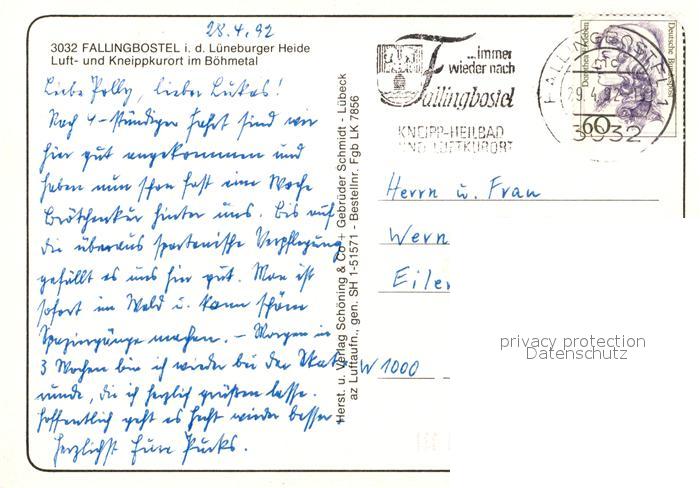 28.4.92
3032 FALLINGBOSTEL i. d. Lüneburger Heide
Luft- und Kneippkurort im Böhmetal
Liebe Polly, lieber Lukas!
Nach 4-stündiger Fahrt sind wir
hier gut angekommen und
haben nun schon fast eine Woche
Brötchenkur hinter uns. Bis auf
die überaus spartanische Verpflegung
gefällt es uns hier gut. Man ist
sofort im Wald u. kann schöne
Spaziergänge machen. – Morgen in
3 Wochen bin ich wieder bei der Skat-
runde, die ich herzlich grüßen lasse.
Hoffentlich geht es Hecht wieder besser.
Herzlichst Eure Pucks.
Herst. u. Verlag Schöning & Co + Gebrüder Schmidt - Lübeck
az Luftaufn., gen. SH 1-51571 - Bestellnr. Fgb LK 7856
...immer
wieder nach
Fallingbostel
KNEIPP-HEILBAD
UND LUFTKURORT
FALLINGBOSTEL 1
29.4.92
3032
Deutsche Bundespost
60
Herrn u. Frau
Wern
Eiler
W 1000
privacy protection
Datenschutz